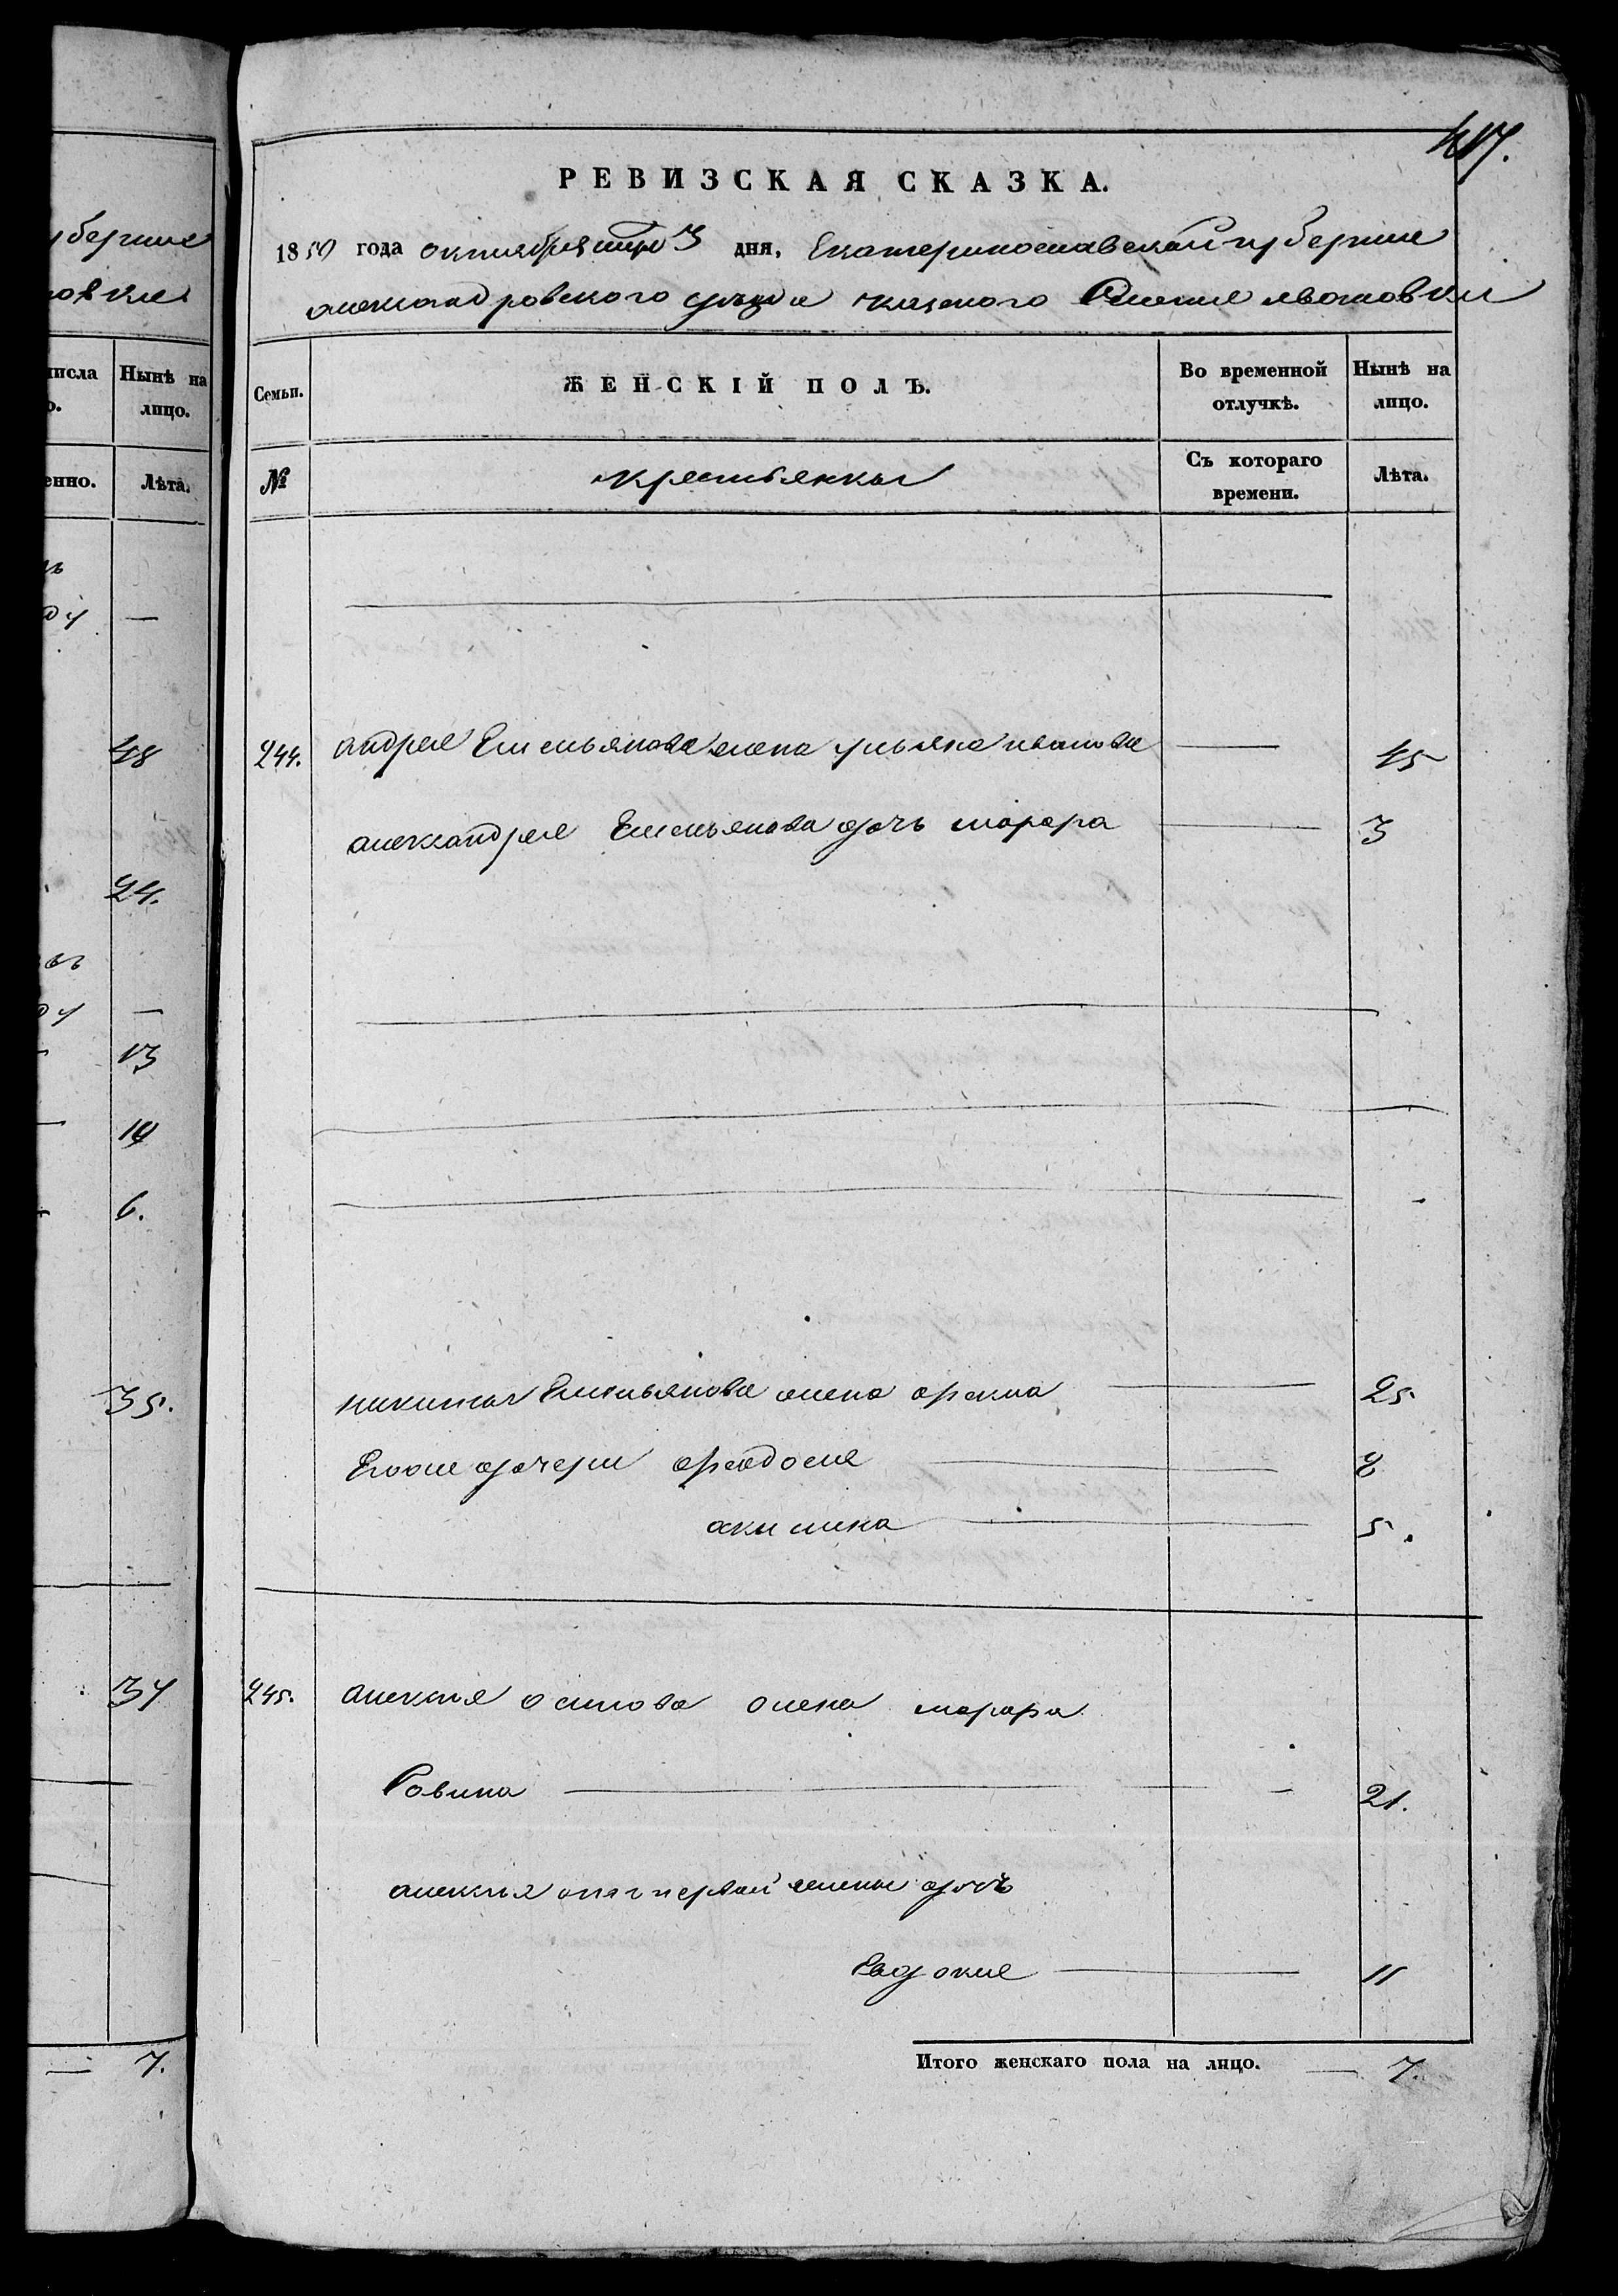 417.
РЕВИЗСКАЯ СКАЗКА.
1850 года октября 3 дня, Екатеринославской губернии
александровского уезда казеного селения
Семьи.
ЖЕНСКІЙ ПОЛЪ.
Во временной отлучкѣ.
Нынѣ на лицо.
№
крестьянки
Съ котораго времени.
Лѣта.
244. андрея Емельянова жена ульяна иванова — 45
александрея Емельянова дочь марфа — 3
никиты Емельянова жена фекла — 25
Еговы дочери феодосия — 8
акилина — 5.
245. алексия осипова жена марфа
Савина — 21.
алексия от первой жены дочь
Евдокия — 11
Итого женскаго пола на лицо. — 7.
губернии
овки
числа
Нынѣ на лицо.
енно.
Лѣта.
ду —
48
24.
ду —
13
10
6.
35.
34
— 7.